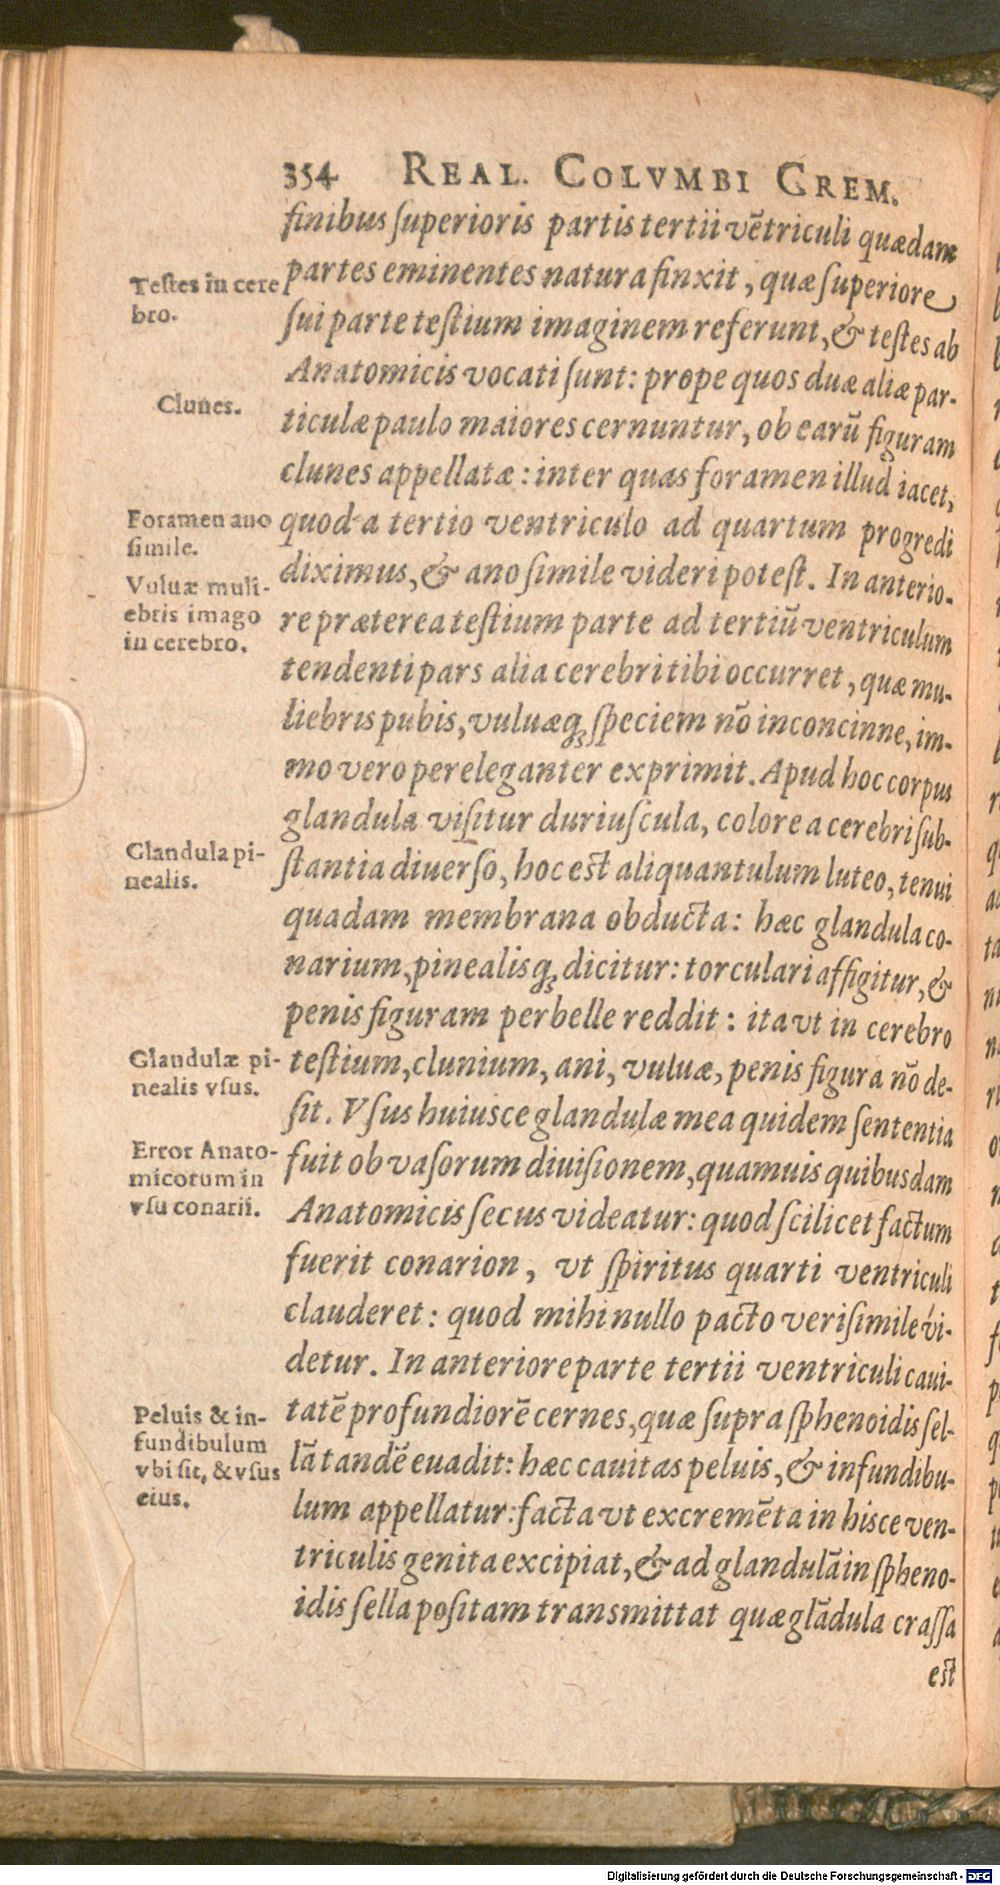 354 REAL. COLVMBI CREM.
finibus ſuperioris partis tertii vẽtriculi quædam
partes eminentes natura finxit, quæ ſuperiore
ſui parte teſtium imaginem referunt, & teſtes ab
Anatomicis vocati ſunt: prope quos duæ aliæ par-
ticulæ paulo maiores cernuntur, ob earũ figuram
clunes appellatæ: inter quas foramen illud iacet,
quod a tertio ventriculo ad quartum progredi
diximus, & ano ſimile videri poteſt. In anterio-
re præterea teſtium parte ad tertiũ ventriculum
tendenti pars alia cerebri tibi occurret, quæ mu-
liebris pubis, vuluæq; ſpeciem nõ inconcinne, im-
mo vero pereleganter exprimit. Apud hoc corpus
glandula viſitur duriuſcula, colore a cerebri ſub-
ſtantia diuerſo, hoc eſt aliquantulum luteo, tenui
quadam membrana obducta: hæc glandula co-
narium, pinealisq; dicitur: torculari affigitur, &
penis figuram perbelle reddit: ita vt in cerebro
teſtium, clunium, ani, vuluæ, penis figura nõ de-
ſit. Vſus huiusce glandulæ mea quidem ſententia
fuit ob vaſorum diuiſionem, quamuis quibusdam
Anatomicis ſecus videatur: quod ſcilicet factum
fuerit conarion, vt ſpiritus quarti ventriculi
clauderet: quod mihi nullo pacto veriſimile vi-
detur. In anteriore parte tertii ventriculi caui-
tatẽ profundiorẽ cernes, quæ ſupra ſphenoidis ſel-
lã tandẽ euadit: hæc cauitas peluis, & infundibu-
lum appellatur: facta vt excremẽta in hisce ven-
triculis genita excipiat, & ad glandulã in ſpheno-
idis ſella poſitam transmittat quæ glãdula craſſa
eſt
Teſtes in cere
bro.
Clunes.
Foramen ano
ſimile.
Vuluæ muli-
ebris imago
in cerebro.
Glandula pi-
nealis.
Glandulæ pi-
nealis vſus.
Error Anato-
micorum in
vſu conarii.
Peluis & in-
fundibulum
vbi ſit, & vſus
eius.
Digitalisierung gefördert durch die Deutsche Forschungsgemeinschaft - DFG